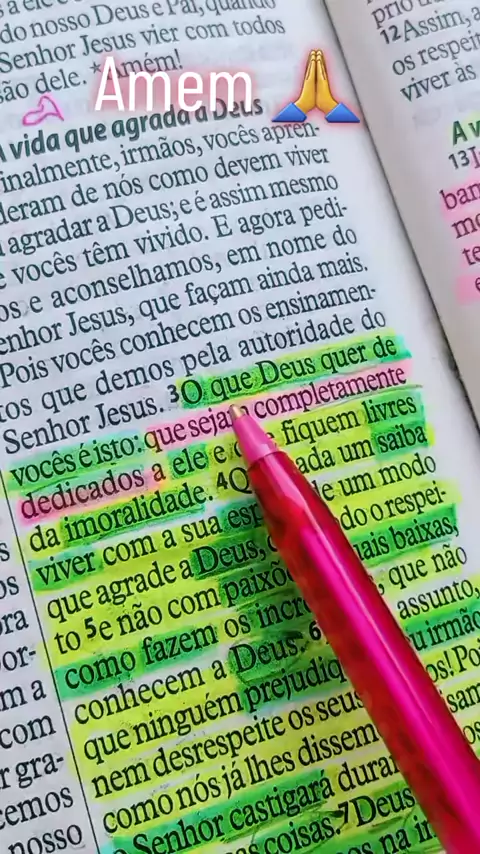 nosso Deus e Pai, quando
Senhor Jesus vier com todos
são dele. *Amém!
Amem 🙏
A vida que agrada a Deus
Finalmente, irmãos, vocês apren-
deram de nós como devem viver
agradar a Deus; e é assim mesmo
vocês têm vivido. E agora pedi-
os e aconselhamos, em nome do
enhor Jesus, que façam ainda mais.
Pois vocês conhecem os ensinamen-
tos que demos pela autoridade do
Senhor Jesus. 3O que Deus quer de
vocês é isto: que sejam completamente
dedicados a ele e fiquem livres
da imoralidade. 4 ada um saiba
viver com a sua esp de um modo
que agrade a Deus, do o respei-
to 5e não com paixõ mais baixas,
como fazem os incré , que não
conhecem a Deus. 6 assunto,
que ninguém prejudiq u irmão
nem desrespeite os seus os! Poi
como nós já lhes dissem
o Senhor castigará duran
as coisas. 7Deus
os na
ora
or-
m a
com
r gra-
cemos
nosso
prio
12Assim, a
os respeit
viver às
A v
13
ban
mo
te